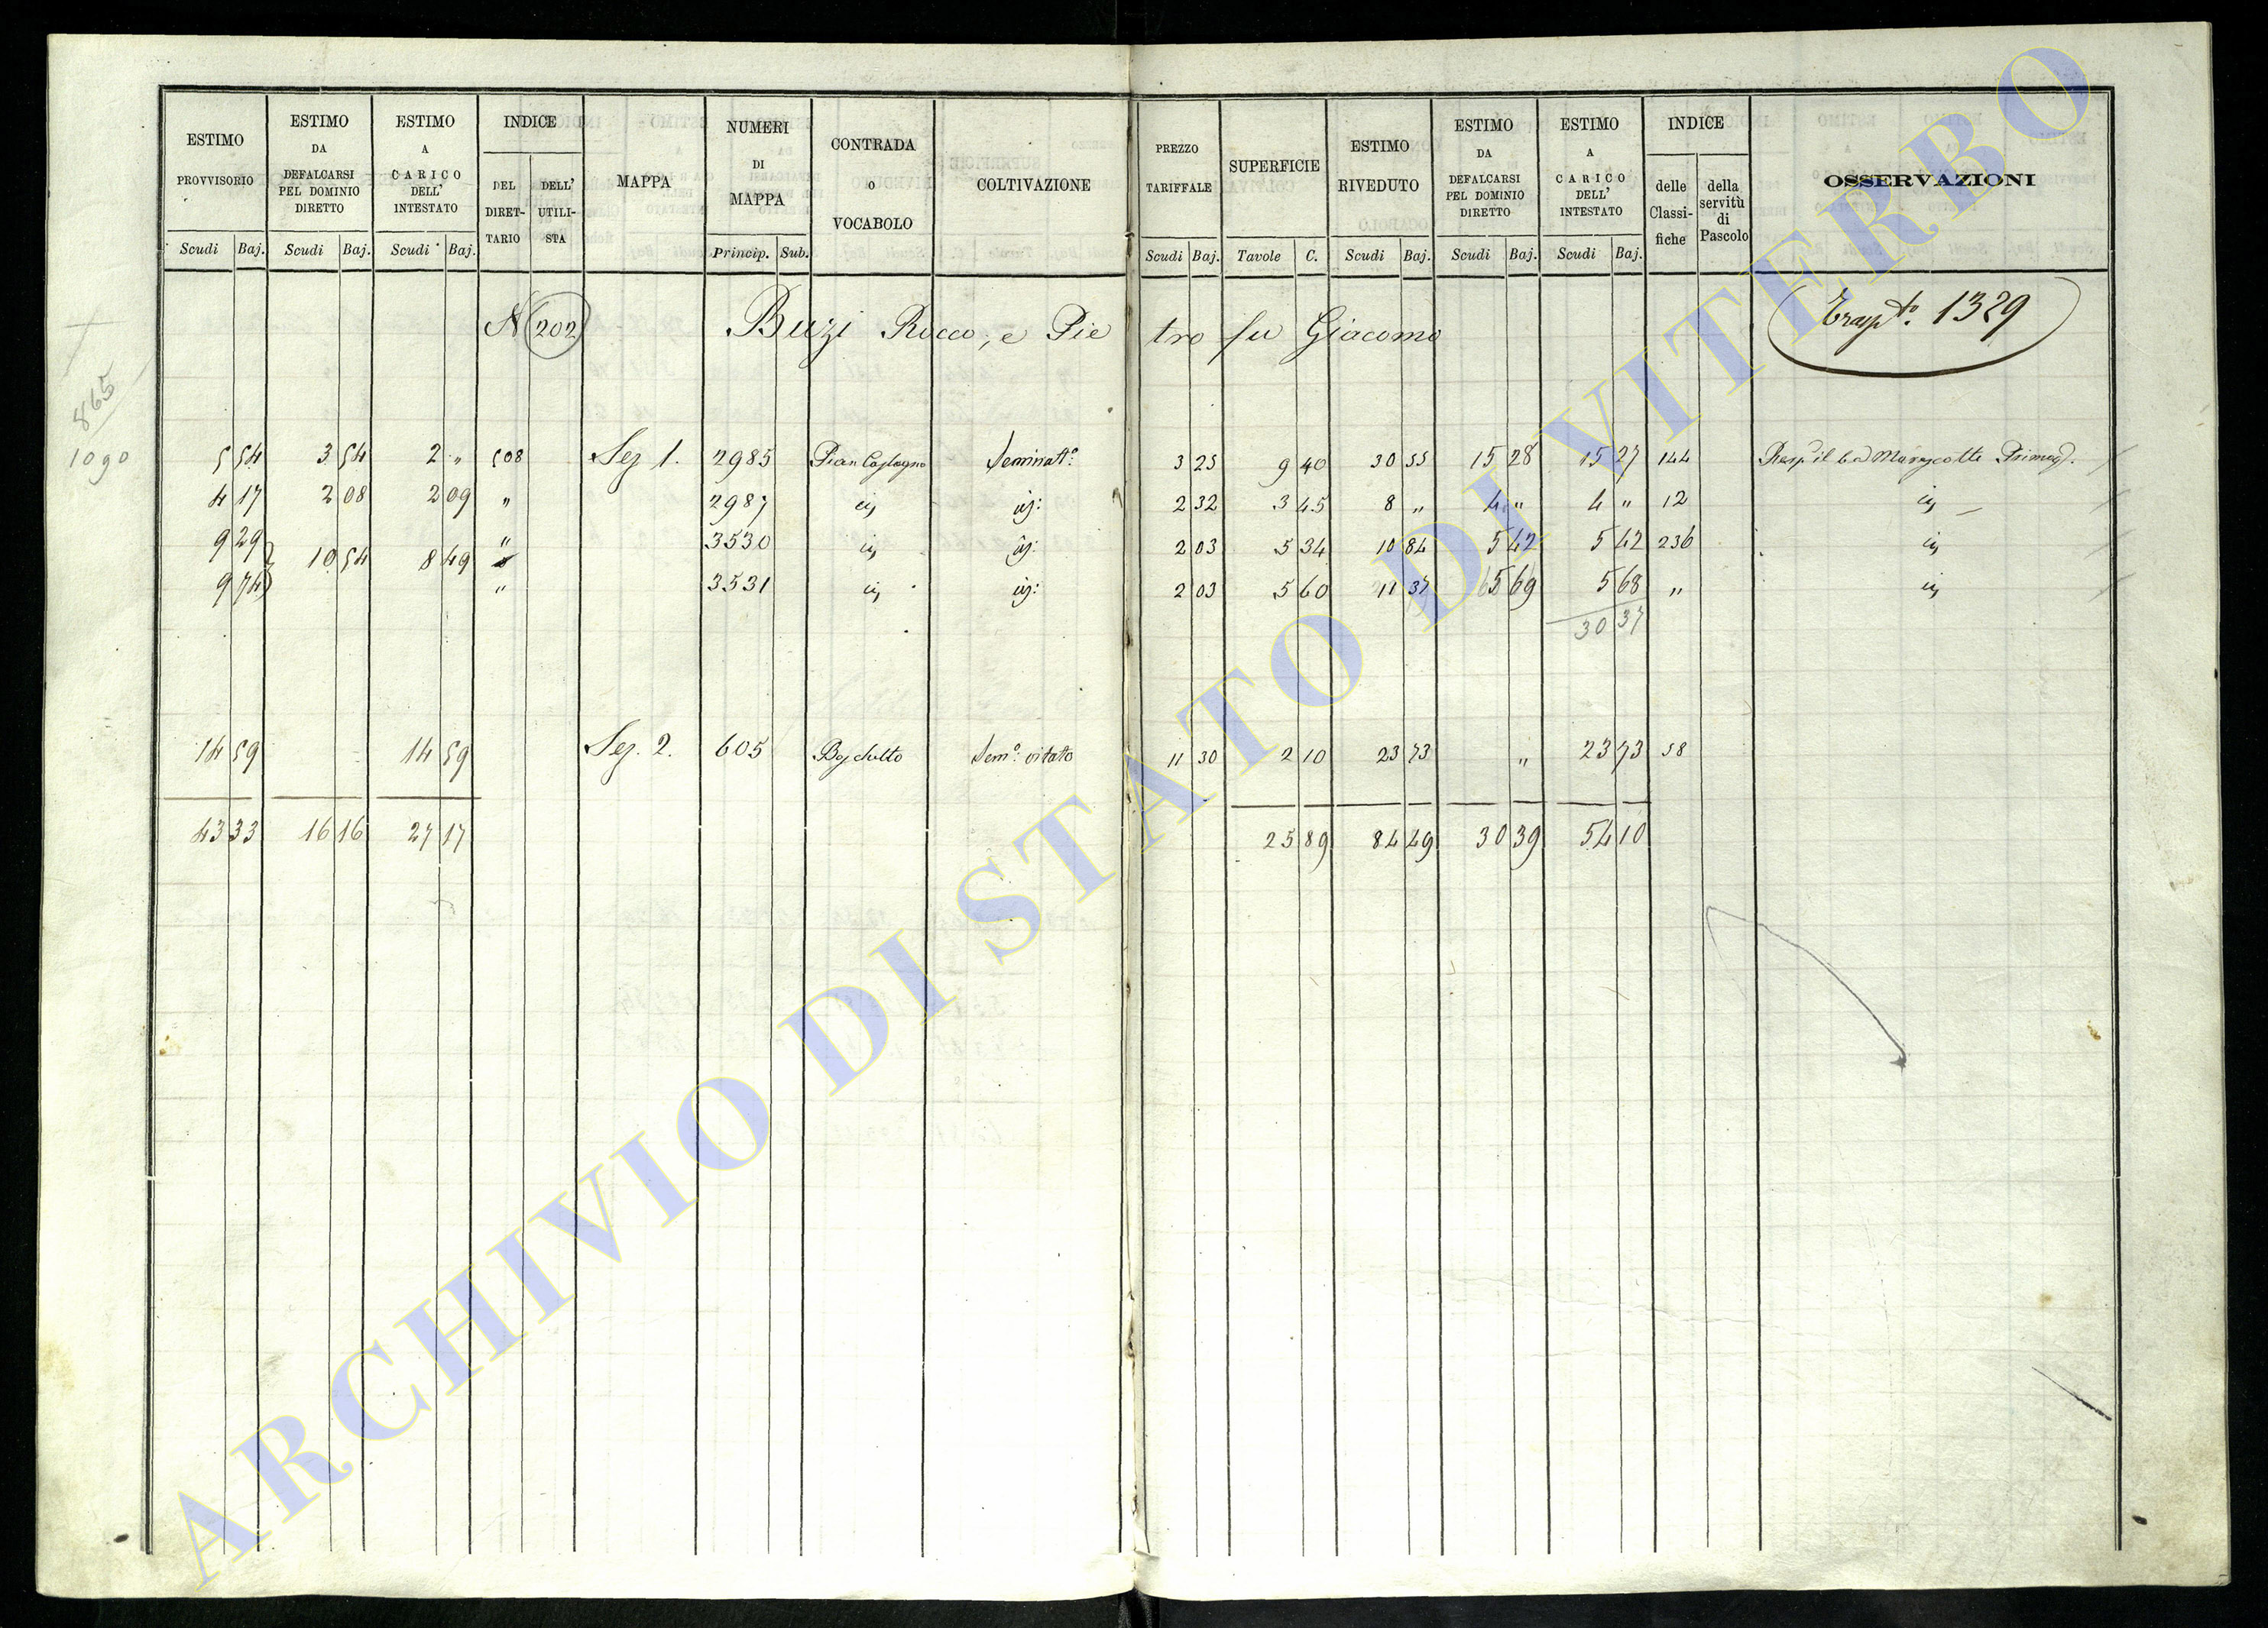 ESTIMO PROVVISORIO Scudi Baj. | ESTIMO DA DEFALCARSI PEL DOMINIO DIRETTO Scudi Baj. | ESTIMO A CARICO DELL' INTESTATO Scudi Baj. | INDICE DEL DIRETTARIO DELL' UTILISTA | MAPPA | NUMERI DI MAPPA Princip. Sub. | CONTRADA O VOCABOLO | COLTIVAZIONE | PREZZO TARIFFALE Scudi Baj. | SUPERFICIE Tavole C. | ESTIMO RIVEDUTO Scudi Baj. | ESTIMO DA DEFALCARSI PEL DOMINIO DIRETTO Scudi Baj. | ESTIMO A CARICO DELL' INTESTATO Scudi Baj. | INDICE delle Classifiche della servitù di Pascolo | OSSERVAZIONI
N 202 Buzi Rocco, e Pietro fu Giacomo Trasp.to 1329
865
1090
5 54 3 54 2 „ 508 Sez 1. 2985 Pian Castagno Seminat.o 3 25 9 40 30 55 15 28 15 27 144
4 17 2 08 2 09 „ 2987 2 32 3 45 8 „ 4 „ 4 „ 12
9 29 „ 3530 2 03 5 34 10 84 5 42 5 42 236
10 54 8 49
9 74 „ 3531 2 03 5 60 11 37 5 69 5 68 „
30 37
14 59 14 59 Sez. 2. 605 Boschetto Sem.o vitato 11 30 2 10 23 73 „ 23 73 58
43 33 16 16 27 17 25 89 84 49 30 39 54 10
ARCHIVIO DI STATO DI VITERBO